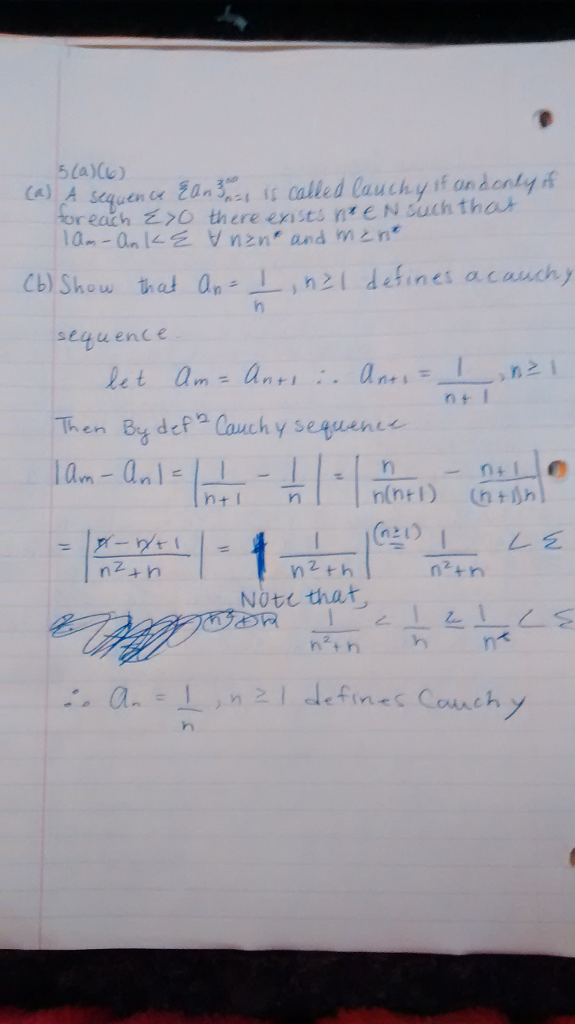 5(a)(b)
(a) A sequence {an}∞n=1 is called Cauchy if and only if
for each Σ>0 there exists n* ∈ N such that
|am - an| < Σ ∀ n≥n* and m≥n*
(b) Show that an = 1/n, n≥1 defines a cauchy
sequence
let am = an+1 ∴ an+1 = 1/(n+1), n≥1
Then By defn Cauchy sequence
|am - an| = |1/(n+1) - 1/n| = |n/(n(n+1)) - (n+1)/((n+1)n)|
= |(n - n + 1)/(n²+n)| = |1/(n²+n)| (n≥1) = 1/(n²+n) < Σ
Note that,
1/(n²+n) < 1/n ≤ 1/n* < Σ
∴ an = 1/n, n≥1 defines Cauchy